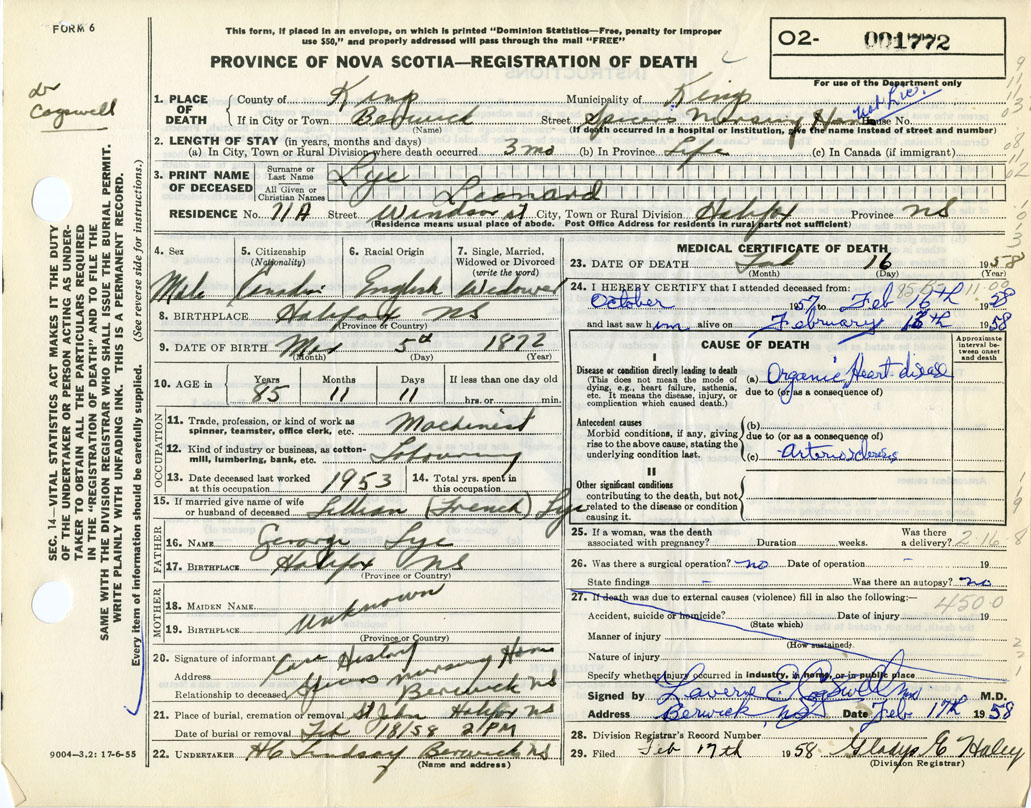 FORM 6
This form, if placed in an envelope, on which is printed "Dominion Statistics—Free, penalty for improper
use $50," and properly addressed will pass through the mail "FREE"
PROVINCE OF NOVA SCOTIA—REGISTRATION OF DEATH
02- 001772
For use of the Department only
dr
Cogswell
SEC. 14—VITAL STATISTICS ACT MAKES IT THE DUTY
OF THE UNDERTAKER OR PERSON ACTING AS UNDER-
TAKER TO OBTAIN ALL THE PARTICULARS REQUIRED
IN THE "REGISTRATION OF DEATH" AND TO FILE THE
SAME WITH THE DIVISION REGISTRAR WHO SHALL ISSUE THE BURIAL PERMIT.
WRITE PLAINLY WITH UNFADING INK. THIS IS A PERMANENT RECORD.
Every item of information should be carefully supplied. (See reverse side for instructions.)
1. PLACE OF DEATH
County of King Municipality of King
If in City or Town Berwick Street Spicers Nursing Home House No.
(Name) (If death occurred in a hospital or institution, give the name instead of street and number)
2. LENGTH OF STAY (in years, months and days)
(a) In City, Town or Rural Division where death occurred 3 mo (b) In Province Life (c) In Canada (if immigrant)
3. PRINT NAME OF DECEASED
Surname or Last Name Lye
All Given or Christian Names Leonard
RESIDENCE No. 71A Street Windsor St City, Town or Rural Division Halifax Province NS
(Residence means usual place of abode. Post Office Address for residents in rural parts not sufficient)
4. Sex 5. Citizenship (Nationality) 6. Racial Origin 7. Single, Married, Widowed or Divorced (write the word)
Male Canadian English Widower
8. BIRTHPLACE Halifax NS
(Province or Country)
9. DATE OF BIRTH Mar 5th 1872
(Month) (Day) (Year)
10. AGE in Years Months Days If less than one day old
85 11 11 hrs. or min.
OCCUPATION
11. Trade, profession, or kind of work as spinner, teamster, office clerk, etc. Machinist
12. Kind of industry or business, as cotton-mill, lumbering, bank, etc. Labouring
13. Date deceased last worked at this occupation 1953 14. Total yrs. spent in this occupation
15. If married give name of wife or husband of deceased Lillian (French) Lye
FATHER
16. NAME George Lye
17. BIRTHPLACE Halifax NS
(Province or Country)
MOTHER
18. MAIDEN NAME Unknown
19. BIRTHPLACE
(Province or Country)
20. Signature of informant Case History
Address Spicers Nursing Home
Relationship to deceased Berwick NS
21. Place of burial, cremation or removal St John Halifax NS
Date of burial or removal Feb 18/58 2 PM
22. UNDERTAKER H C Lindsay Berwick NS
(Name and address)
9004—3.2: 17-6-55
MEDICAL CERTIFICATE OF DEATH
23. DATE OF DEATH Feb 16 1958
(Month) (Day) (Year)
24. I HEREBY CERTIFY that I attended deceased from:
October 1957 to Feb 16th 1958
and last saw him alive on February 16th 1958
CAUSE OF DEATH
Approximate interval between onset and death
I
Disease or condition directly leading to death
(This does not mean the mode of dying, e.g., heart failure, asthenia, etc. It means the disease, injury, or complication which caused death.)
(a) Organic Heart disease
due to (or as a consequence of)
Antecedent causes
Morbid conditions, if any, giving rise to the above cause, stating the underlying condition last.
(b)
due to (or as a consequence of)
(c) Arteriosclerosis
II
Other significant conditions
contributing to the death, but not related to the disease or condition causing it.
25. If a woman, was the death associated with pregnancy? Duration weeks. Was there a delivery?
2 16 8
26. Was there a surgical operation? no Date of operation - 19
State findings - Was there an autopsy? no
27. If death was due to external causes (violence) fill in also the following:—
450.0
Accident, suicide or homicide? Date of injury 19
(State which)
Manner of injury
(How sustained)
Nature of injury
Specify whether injury occurred in industry, in home, or in public place
Signed by Laverne E Cogswell M.D.
Address Berwick, NS Date Feb 17th 1958
28. Division Registrar's Record Number
29. Filed Feb 17th 1958 Gladys E Haley
(Division Registrar)